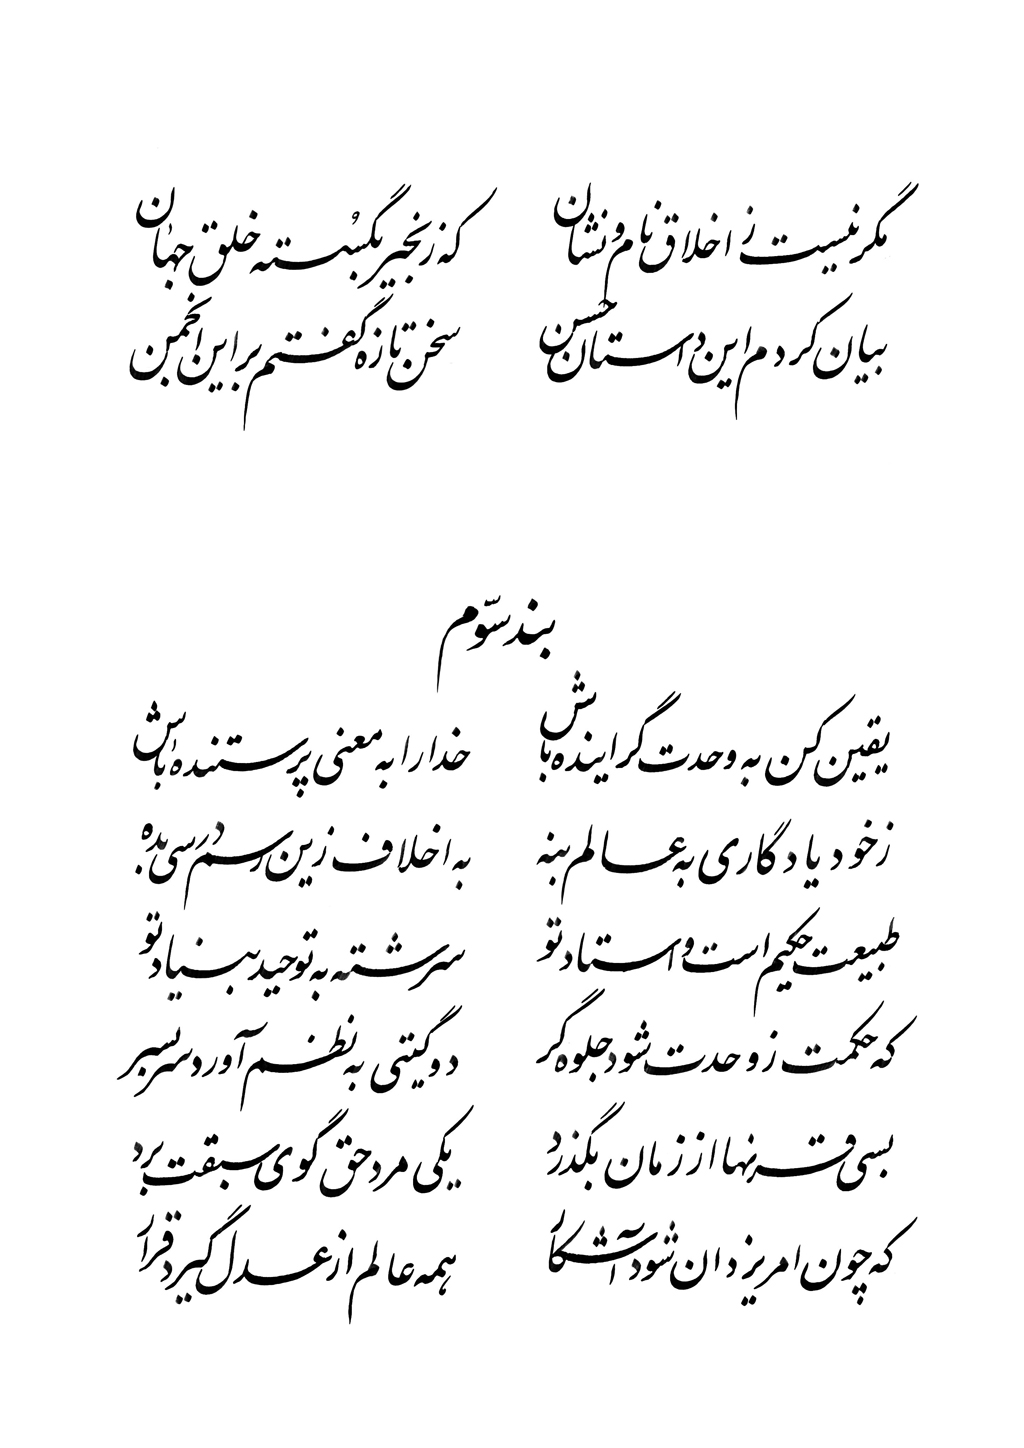 مگر نیست ز اخلاق نام و نشان که زنجیر بگسُسته خلق جهان
بیان کردم این داستان حسن سخن تازه گفتم بر این انجمن
بند سوّم
یقین کن به وحدت گراینده باش خدا را به معنی پرستنده باش
ز خود یادگاری به عالم بنه به اخلاف زین رسم درسی بده
طبیعت حکیم است و استاد تو سرشته به توحید بنیاد تو
که حکمت ز وحدت شود جلوه گر دو گیتی به نظم آورد سربسر
بسی قرنها از زمان بگذرد یکی مرد حق گوی سبقت برد
که چون امر یزدان شود آشکار همه عالم از عدل گیرد قرار